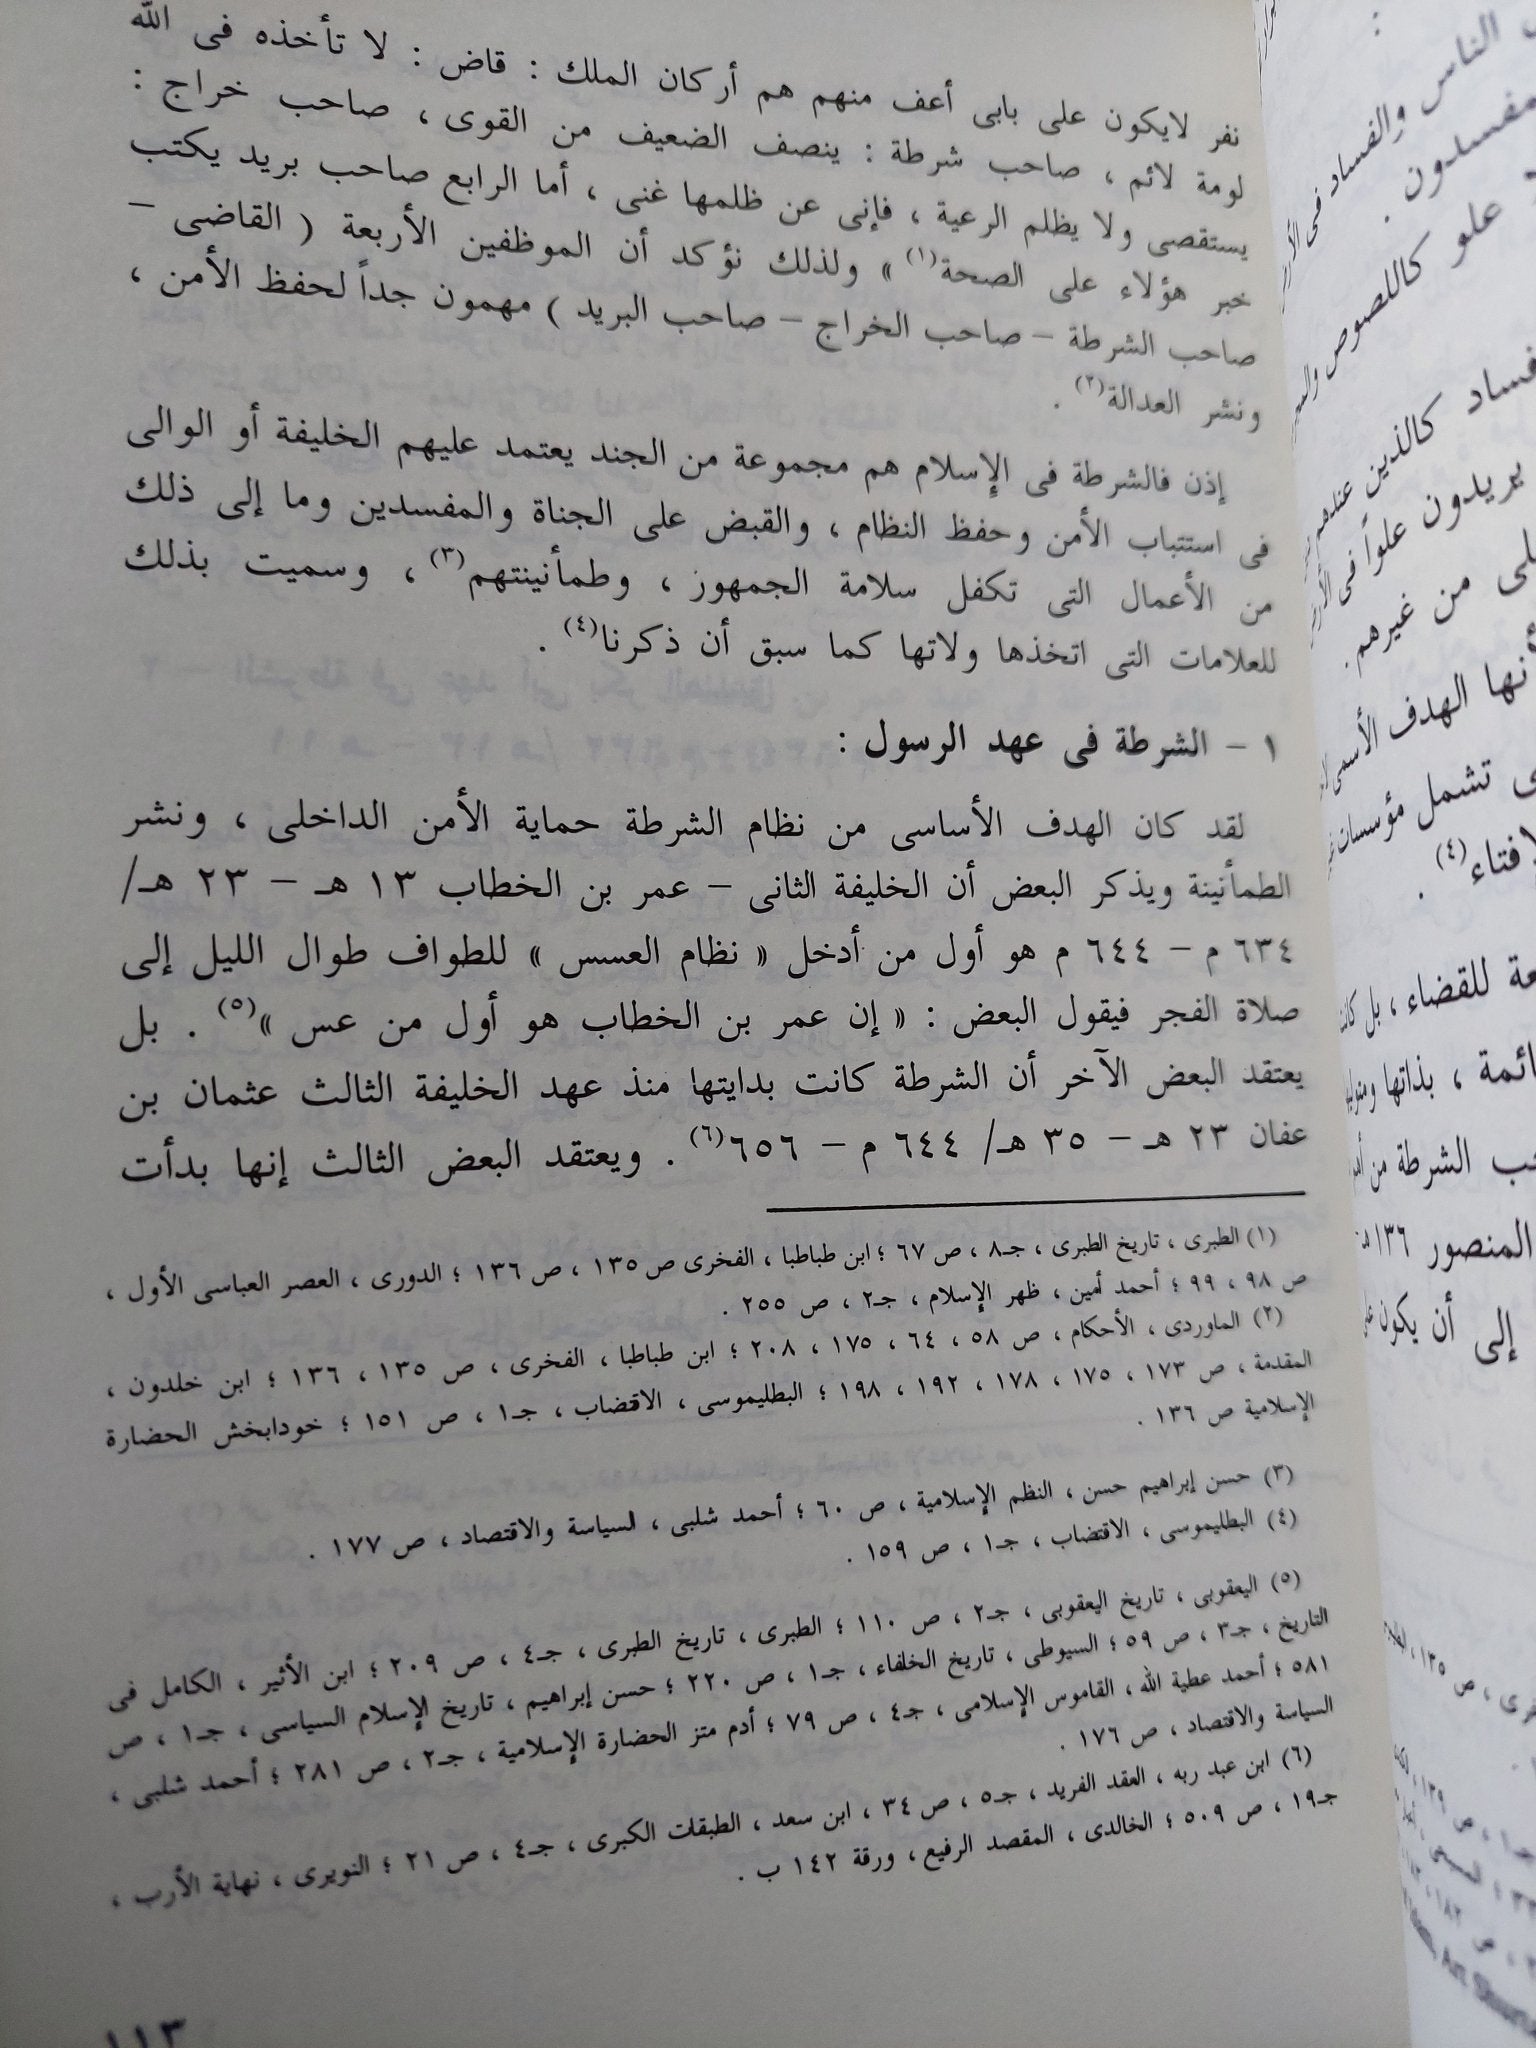 نفر لايكون على بابى أعف منهم هم أركان الملك : قاض : لا تأخذه فى الله
لومة لائم ، صاحب شرطة : ينصف الضعيف من القوى ، صاحب خراج :
يستقصى ولا يظلم الرعية ، فإنى عن ظلمها غنى ، أما الرابع صاحب بريد يكتب
خبر هؤلاء على الصحة(١) » ولذلك نؤكد أن الموظفين الأربعة ( القاضى –
صاحب الشرطة – صاحب الخراج – صاحب البريد ) مهمون جداً لحفظ الأمن ،
ونشر العدالة(٢) .
إذن فالشرطة فى الإسلام هم مجموعة من الجند يعتمد عليهم الخليفة أو الوالى
فى استتباب الأمن وحفظ النظام ، والقبض على الجناة والمفسدين وما إلى ذلك
من الأعمال التى تكفل سلامة الجمهور ، وطمأنينتهم(٣) ، وسميت بذلك
للعلامات التى اتخذها ولاتها كما سبق أن ذكرنا(٤) .
١ – الشرطة فى عهد الرسول :
لقد كان الهدف الأساسى من نظام الشرطة حماية الأمن الداخلى ، ونشر
الطمأنينة ويذكر البعض أن الخليفة الثانى – عمر بن الخطاب ١٣ هـ – ٢٣ هـ/
٦٣٤ م – ٦٤٤ م هو أول من أدخل « نظام العسس » للطواف طوال الليل إلى
صلاة الفجر فيقول البعض : « إن عمر بن الخطاب هو أول من عس »(٥) . بل
يعتقد البعض الآخر أن الشرطة كانت بدايتها منذ عهد الخليفة الثالث عثمان بن
عفان ٢٣ هـ – ٣٥ هـ/ ٦٤٤ م – ٦٥٦(٦) . ويعتقد البعض الثالث إنها بدأت
(١) الطبرى ، تاريخ الطبرى ، جـ٨ ، ص ٦٧ ؛ ابن طباطبا ، الفخرى ص ١٣٥ ، ص ١٣٦ ؛ الدورى ، العصر العباسى الأول ،
ص ٩٨ ، ٩٩ ؛ أحمد أمين ، ظهر الإسلام ، جـ٢ ، ص ٢٥٥ .
(٢) الماوردى ، الأحكام ، ص ٥٨ ، ٦٤ ، ١٧٥ ، ٢٠٨ ؛ ابن طباطبا ، الفخرى ، ص ١٣٥ ، ١٣٦ ؛ ابن خلدون ،
المقدمة ، ص ١٧٣ ، ١٧٥ ، ١٧٨ ، ١٩٢ ، ١٩٨ ؛ البطليموسى ، الاقضاب ، جـ١ ، ص ١٥١ ؛ خودابخش الحضارة
الإسلامية ص ١٣٦ .
(٣) حسن إبراهيم حسن ، النظم الإسلامية ، ص ٦٠ ؛ أحمد شلبى ، لسياسة والاقتصاد ، ص ١٧٧ .
(٤) البطليموسى ، الاقتضاب ، جـ١ ، ص ١٥٩ .
(٥) اليعقوبى ، تاريخ اليعقوبى ، جـ٢ ، ص ١١٠ ؛ الطبرى ، تاريخ الطبرى ، جـ٤ ، ص ٢٠٩ ؛ ابن الأثير ، الكامل فى
التاريخ ، جـ٣ ، ص ٥٩ ؛ السيوطى ، تاريخ الخلفاء ، جـ١ ، ص ٢٢٠ ؛ حسن إبراهيم ، تاريخ الإسلام السياسى ، جـ١ ، ص
٥٨١ ؛ أحمد عطية الله ، القاموس الإسلامى ، جـ٤ ، ص ٧٩ ؛ أدم متز الحضارة الإسلامية ، جـ٢ ، ص ٢٨١ ؛ أحمد شلبى ،
السياسة والاقتصاد ، ص ١٧٦ .
(٦) ابن عبد ربه ، العقد الفريد ، جـ٥ ، ص ٣٤ ، ابن سعد ، الطبقات الكبرى ، جـ٤ ، ص ٢١ ؛ النويرى ، نهاية الأرب ،
جـ١٩ ، ص ٥٠٩ ؛ الخالدى ، المقصد الرفيع ، ورقة ١٤٢ ب .
١١٣
الناس والفساد فى
علو كاللصوص
كالذين عندهم
يريدون علواً فى
من غيرهم .
الهدف الأسمى
تشمل مؤسسات
(٤) .
للقضاء ، بل كانت
، بذاتها
الشرطة من
المنصور ١٣٦ هـ
إلى أن يكون